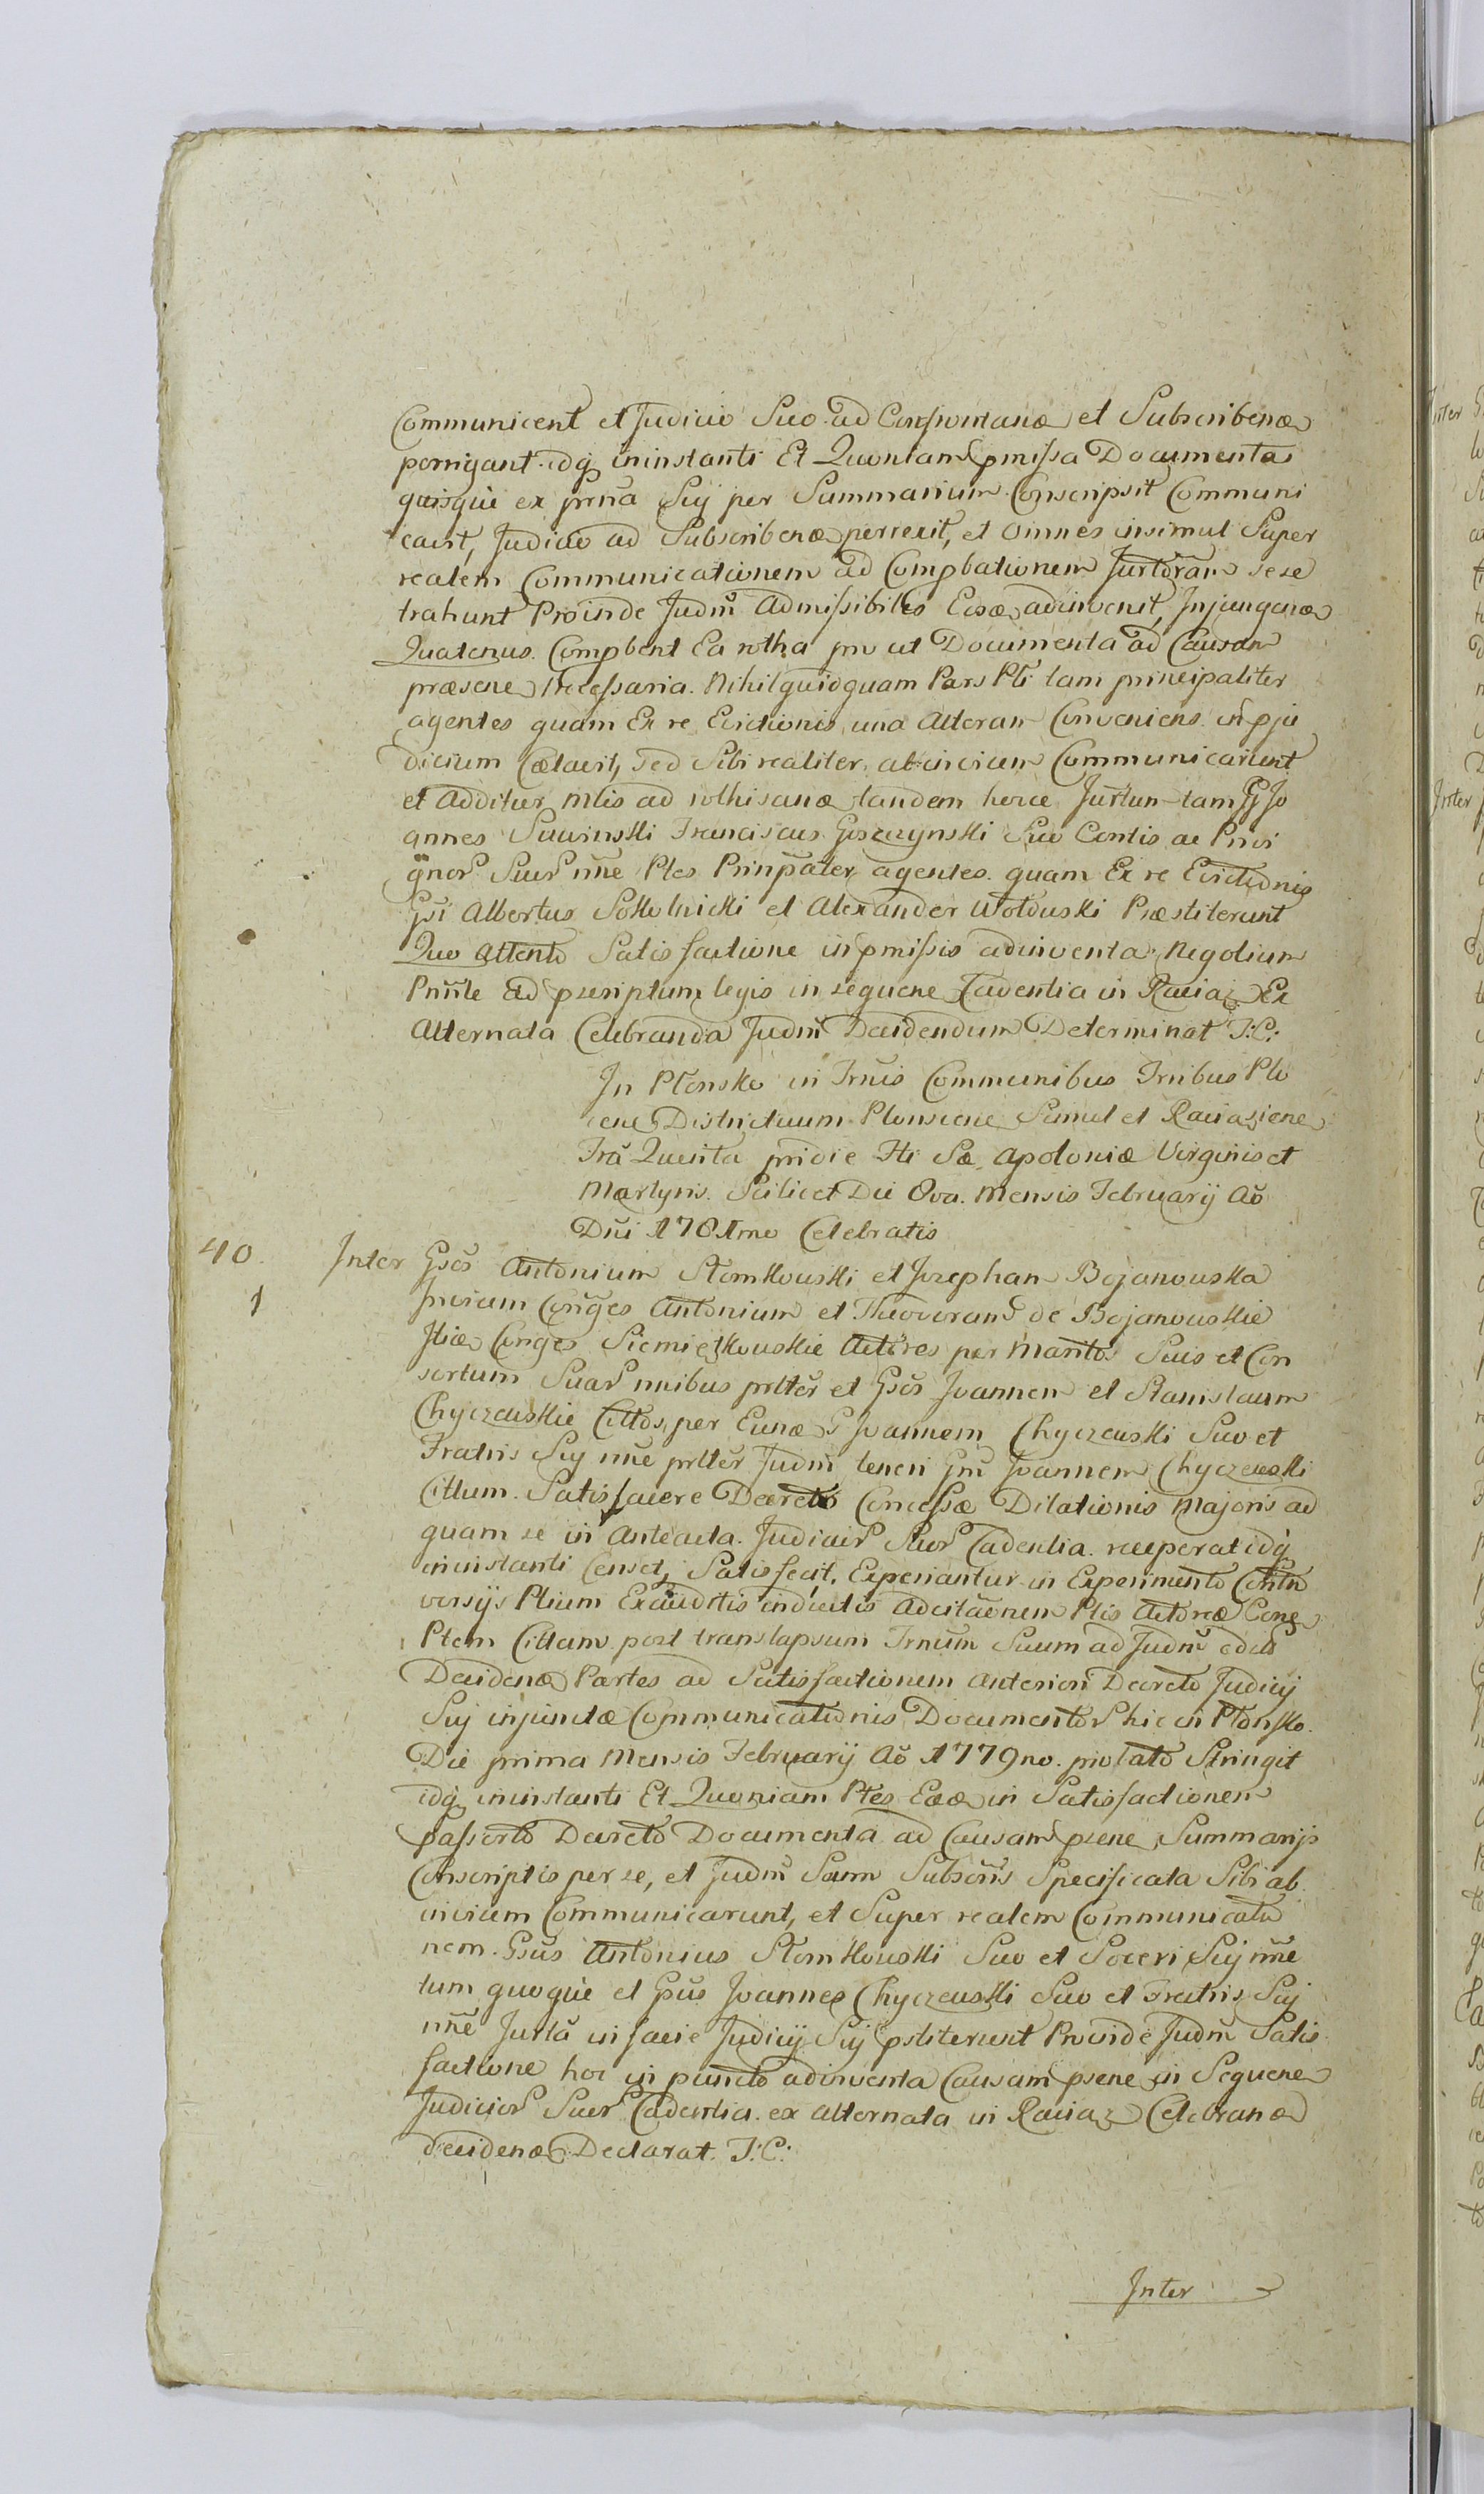 Communicent et Judicio Suo ad Conportanđ et Subscribenđ
porrigant idq, ininstanti Et Quoniam pmissa Documenta
quisque ex prñna Sui per Summarium Conscripsit Communi
cavit, Judicio ad Subscribenđ perrexit, et omnes insimul Super
realem Communicationem ad Compbationem Jurtoram sese
trahunt Proinde Judm̃ Admissibiles Eosđ adinvenit, Injungenđ
Quatenus Compbent Ea rotha prout Documenta ad Causam
præsenc necessaria. Nihil quidquam Pars Pti tam principaliter
agentes quam Ex re Evictionis una Alteram Conveniens in pju
dicium Cælavit, sed Sibi realiter abinvicem Communicarunt
et Additur Mtis ad rothisanđ tandem hocce Jurtum tam GJ Jo
annes Suwinski Franciscus Goszczynski Suo Contis ac Privi
gnor Suor nñe Ptes Prinpaler agentes quam Ex re Evictionis
Gsi Albertus Sokolnicki et Alexander Wolduski Præstiterunt
Quo Attento Satisfactione in pmissis adinventa Negotium
Pnñle ad pscriptum legis in sequenc Cadentia in Raciaz Ex
Alternata Celebranda Judm̃ Decidendum Determinat J: C:
In Plonsko in Trnis Communibus Trnibus Plo
cenc Districtuum Plonscenc Simul et Raciazienc
Frã Quinta pridie Fti Sæ Apoloniæ Virginis et
Martyris. Scilicet Die 8va. Mensis Februarij Aõ
Dñi 1781mo Celebratis
40. Inter Gsos Antonium Slomkouski et Josepham Bojanouska
1 primam Conges Antonium et Theodoram de Bojanouskie
Itiæ Conges Siemiętkouskie Actores per Maritos Suis et Con
sortum Suar nnibus prlter et Gsos Joannem et Stanislaum
Chyczeuskie Cittos per Eunđ G Joannem Chyczeuski Suo et
Fratris Sui nñe prlter Judm̃ teneri Gm̃ Joannem Chyczeuski
Cittum Satisfacere Decreto Concessæ Dilationis Majoris ad
quam se in anteacta Judicior Suor Cadentia receperat idq
ininstanti Censet, Satisfecit, Experiantur in Experimento Contro
versijs Ptium Exauditis inductis Adcitãonem Ptis Actoreæ Conc
Ptem Cittam post translapsum Trnum Suum ad Judm̃ edit
Decidenđ Partes ad Satisfactionem anteriori Decreto Judicij
Sui injunctæ Communicationis Documentor hic in Plonsko.
Die prima Mensis Februarij Aõ 1779no. prolato Stringit
idq, ininstanti Et Quoniam Ptes Eæđ in Satisfactionem
passerto Decreto Documenta ad Causam psenc Summarijs
Conscriptis per se, et Judm̃ Suum Subscris Specificata Sibi ab
invicem Communicarunt, et Super realem Communicatio
nem. Gsus Antonius Slomkouski Suo et Soceri Sui nñe
tum quoque et Gsus Joannes Chyczeuski Suo et Fratris Sui
nñe Jurta in facie Judicij Sui pstiterunt Proinde Judm̃ Satis
factione hoc in puncto adinventa Causam psenc in Sequenc
Judicior Suor Cadentia ex alternata in Raciaz Celebranđ
decidenđ Declarat. J: C:
Inter